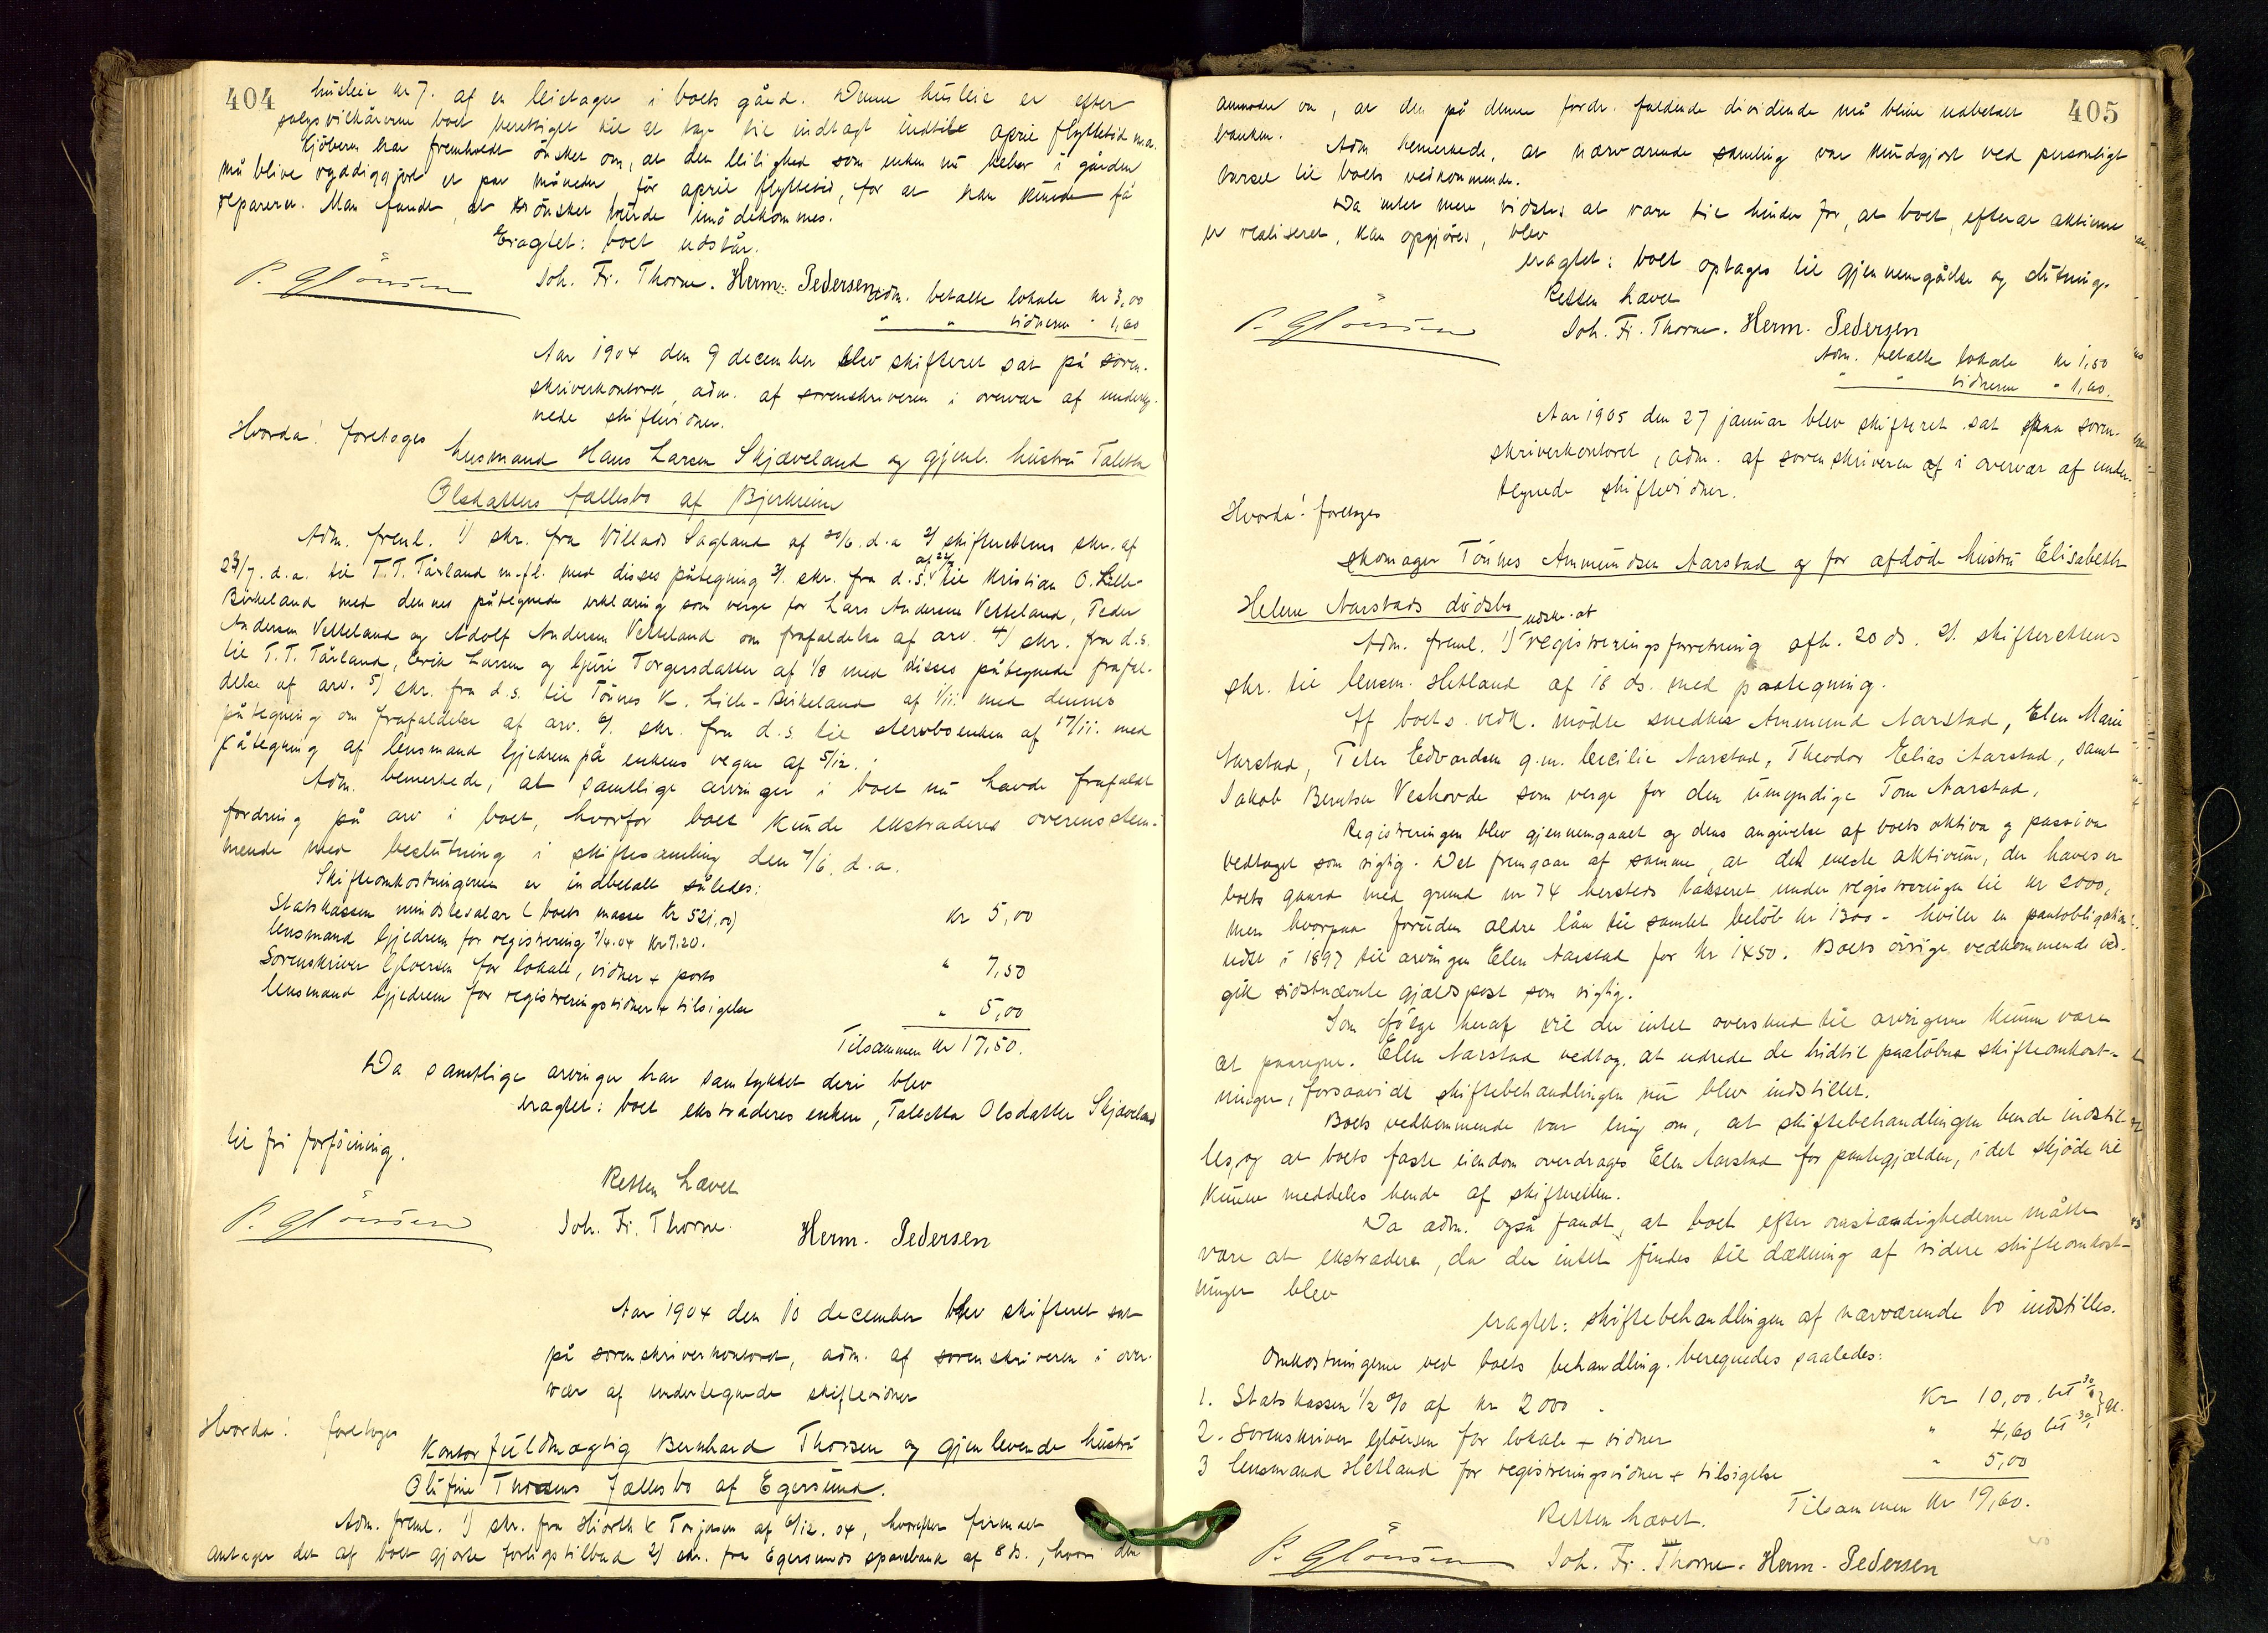 404
husleie kr 7. af en leietager i boets gård. Denne husleie er efter
salgsvilkårene boet berettiget til at tage til indtægt indtil april flyttetid n.a.
Kjöberen har fremholdt önsket om, at den leilighed som enken nu bebor i gården
må blive ryddiggjort et par måneder för april flyttetid, for at han kunde få
reparere. Man fandt, at önsket burde imödekommes.
Eragtet: boet udstår.
P. Glörsen Joh. Fr. Thorne. Herm. Pedersen
Adm. betalte lokale kr 3,00
" " vidnerne " 1,60
Aar 1904 den 9 december blev skifteret sat på soren-
skriverkontoret, adm. af sorenskriveren i overvær af underteg-
nede skiftevidner.
Hvorda! foretoges
husmand Hans Larsen Skjæveland og gjenl. hustru Taletta
Olsdatters fællesbo af Bjerkreim
Adm. freml. 1) skr. fra Villads Sagland af 20/6. d.a. 2) skifterettens skr. af
23/7. d.a. til T.T. Tårland m.fl. med disses påtegning 3). skr. fra d.s. til Kristian O. Lille-
Birkeland med dennes påtegnede erklæring som verge for Lars Andersen Vetteland, Peder
Andersen Vetteland og Adolf Andersen Vetteland om frafaldelse af arv. 4) skr. fra d.s.
til T.T. Tårland, Erik Larsen og Guri Torgersdatter af 1/8 med disses påtegnede frafal-
delse af arv. 5) skr. fra d.s. til Tönnes K. Lille-Birkeland af 1/11. med dennes
påtegning om frafaldelse af arv. 6). skr. fra d.s. til sterboenken af 17/11. med
påtegning af lensmand Gjedrem på enkens vegne af 5/12.
Adm. bemerkede, at samtlige arvinger i boet nu havde frafaldt
fordring på arv i boet, hvorfor boet kunde ekstraderes overensstem-
mende med beslutning i skiftesamling den 7/6. d.a.
Skifteomkostningerne er indbetalt således:
Statskassen mindstevalør (boets masse Kr 521,00) kr 5,00
lensmand Gjedrem for registrering 7/4.04 kr 7.20.
Sorenskriver Glörsen for lokale, vidner + porto " 7,50
lensmand Gjedrem for registreringsvidner + tilsigelse " 5,00
Tilsammen kr 17,50.
Da samtlige arvinger har samtykket deri blev
eragtet: boet ekstraderes enken, Taletta Olsdatter Skjæveland
til fri forföining.
Retten hævet
P. Glörsen Joh. Fr. Thorne. Herm. Pedersen
Aar 1904 den 10 december blev skifteret sat
på sorenskriverkontoret, adm. af sorenskriveren i over-
vær af undertegnede skiftevidner
Hvorda! foretoges
Kontorfuldmægtig Bernhard Thorsen og gjenlevende hustru
Olufine Thorsens fællesbo af Egersund.
Adm. freml. 1) skr. fra Hiorth & Torjusen af 6/12. 04, hvorefter firmaet
antager det af boet gjorte forligstilbud 2) skr. fra Egersunds sparebank af 8 ds., hvori den
405
anmoder om, at den på denne fordr. faldende dividende må blive udbetalt
banken.
Adm bemerkede, at nærværende samling var kundgjort ved personligt
varsel til boets vedkommende.
Da intet mere vidstes at være til hinder for, at boet, efterat aktierne
er realiseret, kan opgjöres, blev
eragtet: boet optages til gjennemgåelse og slutning.
Retten hævet
P. Glörsen Joh. Fr. Thorne. Herm. Pedersen
Adm. betalte lokale kr 1,50
" " vidnerne " 1,60.
Aar 1905 den 27 januar blev skifteret sat paa soren-
skriverkontoret, adm. af sorenskriveren i overvær af under-
tegnede skiftevidner.
Hvorda! foretoges
skomager Tönnes Ammundsen Aarstad og for afdöde hustru Elisabeth
Helene Aarstads dödsbo
Adm. freml. 1) udskr. af registreringsforretning afh. 20 ds. 2). skifterettens
skr. til lensm. Hetland af 18 ds. med paategning.
Af boets vedk. mödte snedker Ammund Aarstad, Elen Marie
Aarstad, Peter Edvardsen g.m. Cecilie Aarstad, Theodor Elias Aarstad, samt
Jakob Berntsen Veshovde som verge for den umyndige Tom Aarstad.
Registreringen blev gjennemgaaet og dens angivelse af boets aktiva og passiva
vedtaget som rigtig. Det fremgaar af samme, at det eneste aktivum, der haves er
boets gaard med grund nr 74 hersteds takseret under registreringen til kr 2000,
men hvorpaa foruden ældre lån til samlet belöb kr 1300 - hviler en pantobligation
udst. i 1897 til arvingen Elen Aarstad for kr 1450. Boets övrige vedkommende ved-
gik sidstnævnte gjældspost som rigtig.
Som fölge heraf vil der intet overskud til arvingerne kunne være
at paaregne. Elen Aarstad vedtog at udrede de hidtil paalöbne skifteomkost-
ninger, forsaavidt skiftebehandlingen nu blev indstillet.
Boets vedkommende var enig om, at skiftebehandlingen burde indstil-
les, og at boets faste eiendom overdrages Elen Aarstad for pantegjælden, idet skjöde vil
kunne meddeles hende af skifteretten.
Da adm. også fandt, at boet efter omstændighederne måtte
være at ekstradere, da der intet findes til dækning af videre skifteomkost-
ninger blev
eragtet: skiftebehandlingen af nærværende bo indstilles.
Omkostningerne ved boets behandling beregnedes saaledes:
1. Statskassen 1/2 % af kr 2000 . Kr 10,00. bet 30/1
2. Sorenskriver Glörsen for lokale + vidner " 4,60 bet 30/1
3 lensmand Hetland for registreringsvidner + tilsigelse " 5,00
Tilsammen kr 19,60.
Retten hævet.
P. Glörsen Joh. Fr. Thorne. Herm. Pedersen